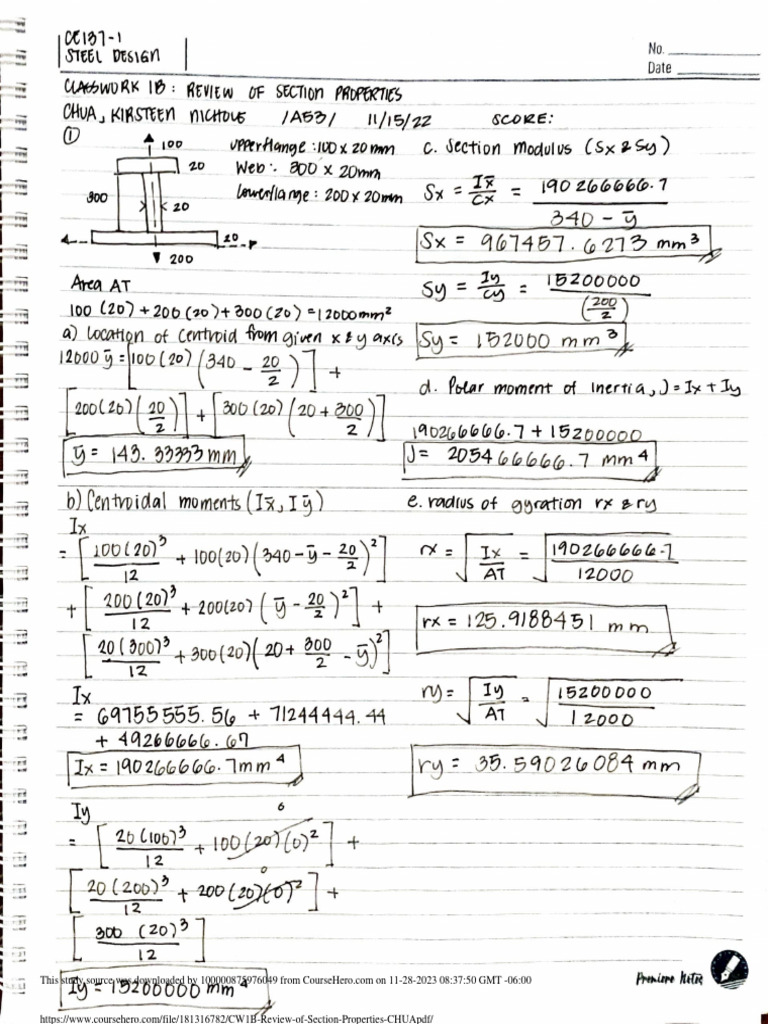 CE137-1
STEEL DESIGN
No.
Date
CLASSWORK 1B: REVIEW OF SECTION PROPERTIES
CHUA, KIRSTEEN NICHOLE /A53/ 11/15/22 SCORE:
①
100
20
300
20
20
200
upperflange: 100 x 20mm
Web: 300 x 20mm
Lowerflange: 200 x 20mm
Area AT
100(20) + 200(20) + 300(20) = 12000mm²
a) Location of centroid from given x & y axis
12000 ȳ = [100(20)(340 - 20/2)] +
[200(20)(20/2)] + [300(20)(20 + 300/2)]
ȳ = 143.33333 mm
b) Centroidal moments (Ix̄, Iȳ)
Ix
= [100(20)³/12 + 100(20)(340 - ȳ - 20/2)²]
+ [200(20)³/12 + 200(20)(ȳ - 20/2)²] +
[20(300)³/12 + 300(20)(20 + 300/2 - ȳ)²]
Ix
= 69755555.56 + 71244444.44
+ 49266666.67
Ix = 190266666.7mm⁴
Iy
= [20(100)³/12 + 100(20)(0)²] +
0
[20(200)³/12 + 200(20)(0)²] +
0
[300 (20)³/12]
Iy = 15200000 mm⁴
c. Section modulus (Sx & Sy)
Sx = Ix̄/Cx = 190266666.7/340 - ȳ
Sx = 967457.6273 mm³
Sy = Iy/cy = 15200000/(200/2)
Sy = 152000 mm³
d. Polar moment of inertia, J = Ix + Iy
190266666.7 + 15200000
J = 205466666.7 mm⁴
e. radius of gyration rx & ry
rx = √Ix/AT = √190266666.7/12000
rx = 125.9188451 mm
ry = √Iy/AT = √15200000/12000
ry = 35.59026084 mm
This study source was downloaded by 100000875976049 from CourseHero.com on 11-28-2023 08:37:50 GMT -06:00
Premiere Notes
https://www.coursehero.com/file/181316782/CW1B-Review-of-Section-Properties-CHUApdf/